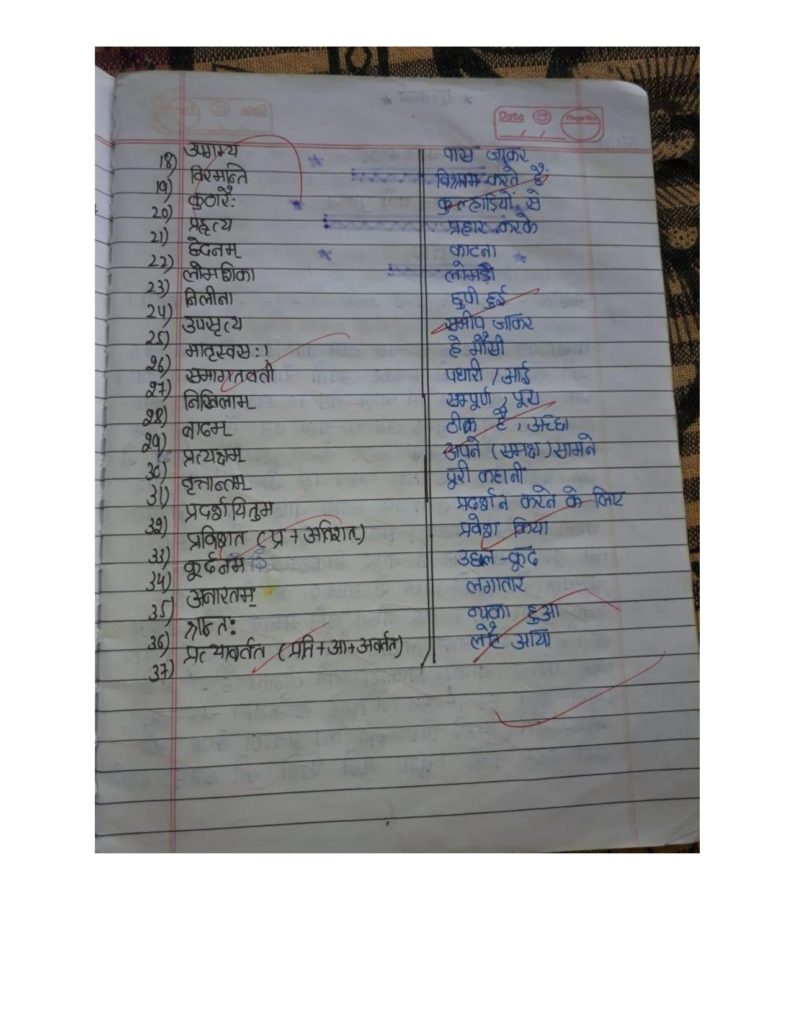 Date Page No.
18) उपगम्य पास जाकर
19) विरमन्ति विश्राम करते हैं
20) कुठारैः कुल्हाड़ियों से
21) प्रहृत्य प्रहार करके
22) छेदनम् काटना
23) लोमशिका लोमड़ी
24) निलीना छुपी हुई
25) उपसृत्य समीप जाकर
26) मातृस्वसः! हे मौसी
27) समागतवती पधारी / आई
28) निखिलाम् सम्पूर्ण, पूरा
29) बाढम् ठीक है, अच्छा
30) प्रत्यक्षम् अपने (समक्ष) सामने
31) वृत्तान्तम् पूरी कहानी
32) प्रदर्शयितुम प्रदर्शन करने के लिए
33) प्रविशत (प्र + अविशत्) प्रवेश किया
34) कूर्दनम उछल-कूद
35) अनारतम् लगातार
36) श्रान्तः थका हुआ
37) प्रत्यावर्तत (प्रति+आ+अवर्तत) लौट आया